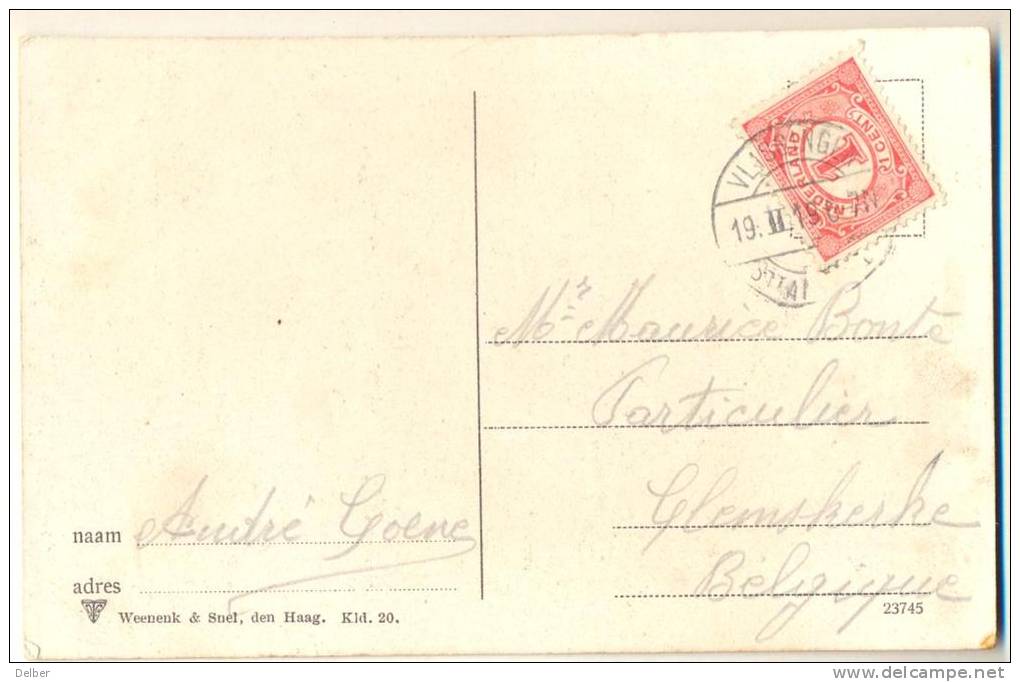 1 CENT
1
NEDERLAND
19. II. 6-7N
Mr Maurice Bonte
Particulier
Clemskerke
Belgique
naam André Goene
adres
Weenenk & Snel, den Haag. Kld. 20.
23745
Delber
www.delcampe.net